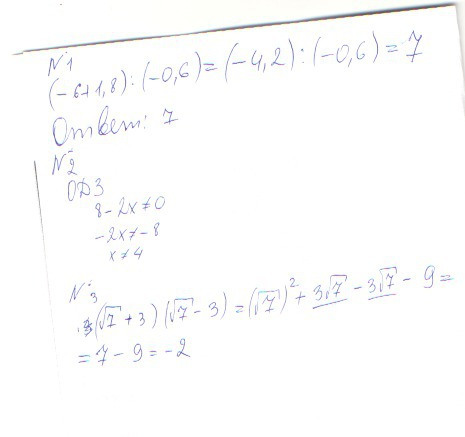 №1
(-6+1,8):(-0,6)=(-4,2):(-0,6)=7
Ответ: 7
№2
ОДЗ
8-2x≠0
-2x≠-8
x≠4
№3
(√7+3)(√7-3)=(√7)²+3√7-3√7-9=
=7-9=-2